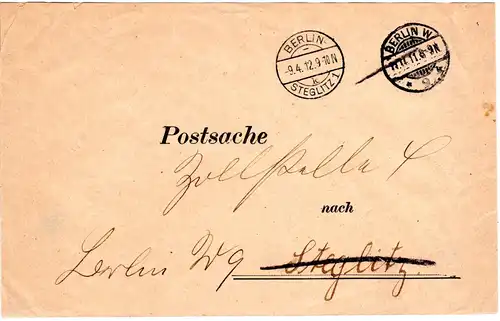 BERLIN-
-9.4.12.9-10N
k
STEGLITZ 1
BERLIN W
11.8-9N
* 9 *
Postsache
Zollstelle 4
nach
Berlin W 9 Steglitz.